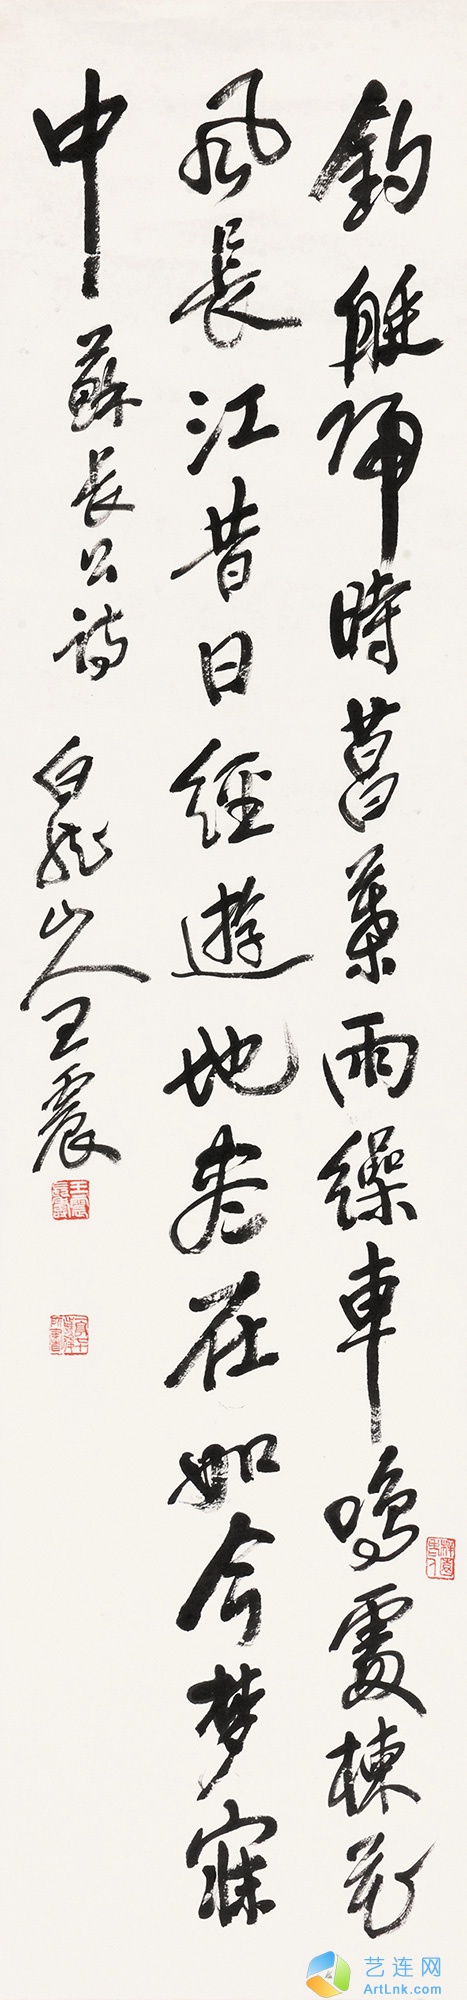 釣艇歸時菖葉雨繰車鳴處楝花
風長江昔日經遊地盡在如今梦寐
中 蘇長公詩 白龍山人王震
艺连网
ArtLnk.com